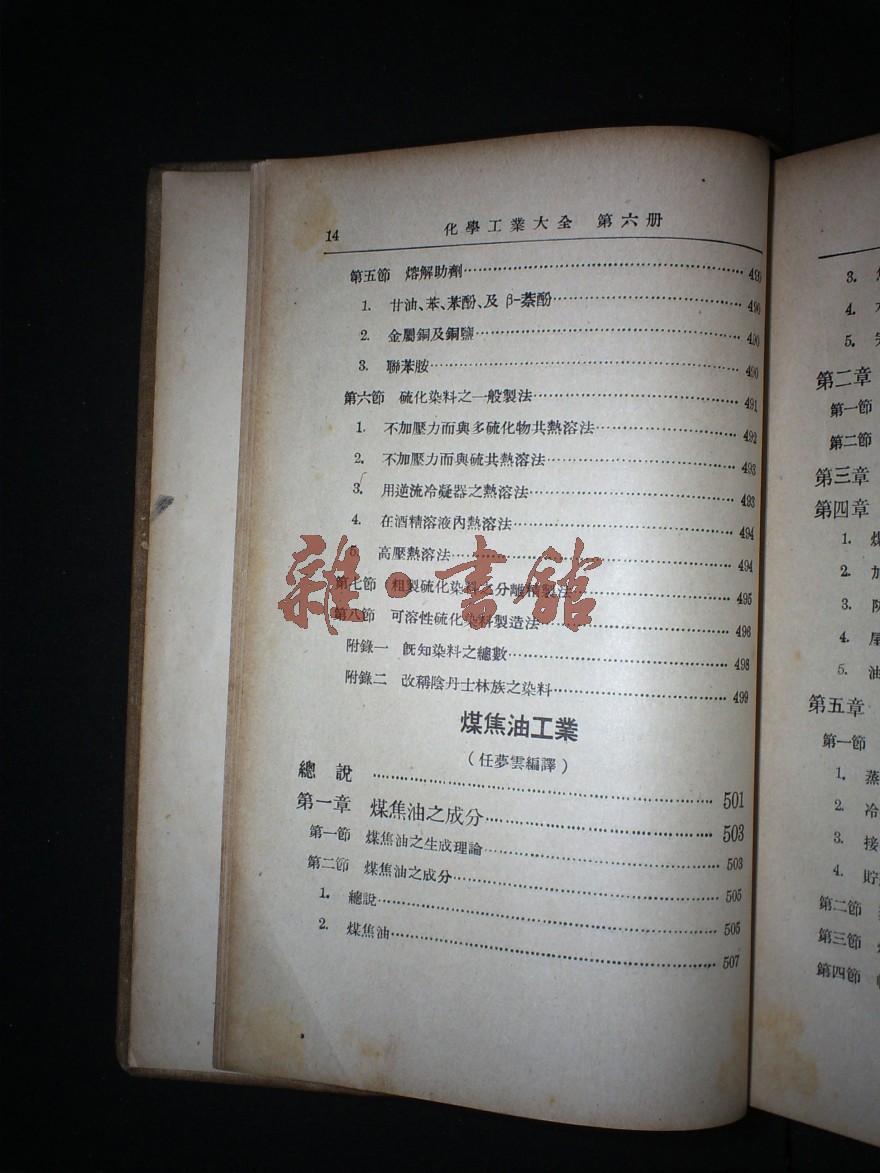 14
化學工業大全 第六册
第五節 熔解助劑 489
1. 甘油、苯、苯酚、及 β-萘酚 490
2. 金屬銅及銅鹽 490
3. 聯苯胺 490
第六節 硫化染料之一般製法 491
1. 不加壓力而與多硫化物共熱溶法 492
2. 不加壓力而與硫共熱溶法 493
3. 用逆流冷凝器之熱溶法 493
4. 在酒精溶液內熱溶法 494
5. 高壓熱溶法 494
第七節 粗製硫化染料之分離精製法 495
第八節 可溶性硫化染料製造法 496
附錄一 旣知染料之總數 498
附錄二 改稱陰丹士林族之染料 499
煤焦油工業
(任夢雲編譯)
總說 501
第一章 煤焦油之成分 503
第一節 煤焦油之生成理論 503
第二節 煤焦油之成分 505
1. 總說 505
2. 煤焦油 507
雜·書館
3.
4.
5.
第二章
第一節
第二節
第三章
第四章
1. 煤
2. 加
3. 防
4.
5. 油
第五章
第一節
1. 蒸
2. 冷
3. 接
4. 貯
第二節
第三節
第四節